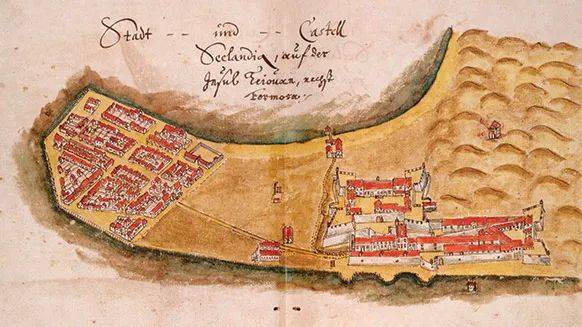 Stadt -- und -- Castell
Seelandia, auf der
Insul Teiouan, nechst
Formosa.